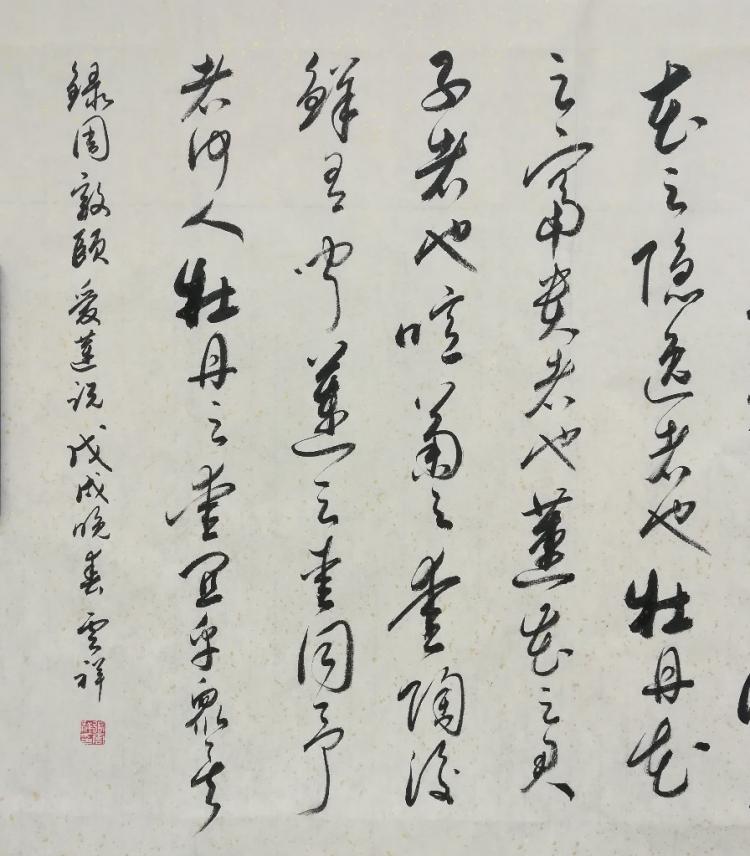 花之隱逸者也牡丹花
之富貴者也蓮花之君
子者也噫菊之愛陶後
鮮有聞蓮之愛同予
者何人牡丹之愛宜乎眾矣
録周敦頤愛蓮說戊戌晚春雲祥